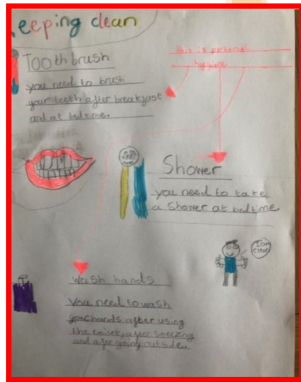 eeping clean
Tooth brush
you need to brush
your teeth after breakfast
and at bedtime.
this is personal
hygiene
Shower
you need to take
a shower at bedtime
Wash hands
You need to wash
hands after using
the toilet, after sneezing
and after going outside.